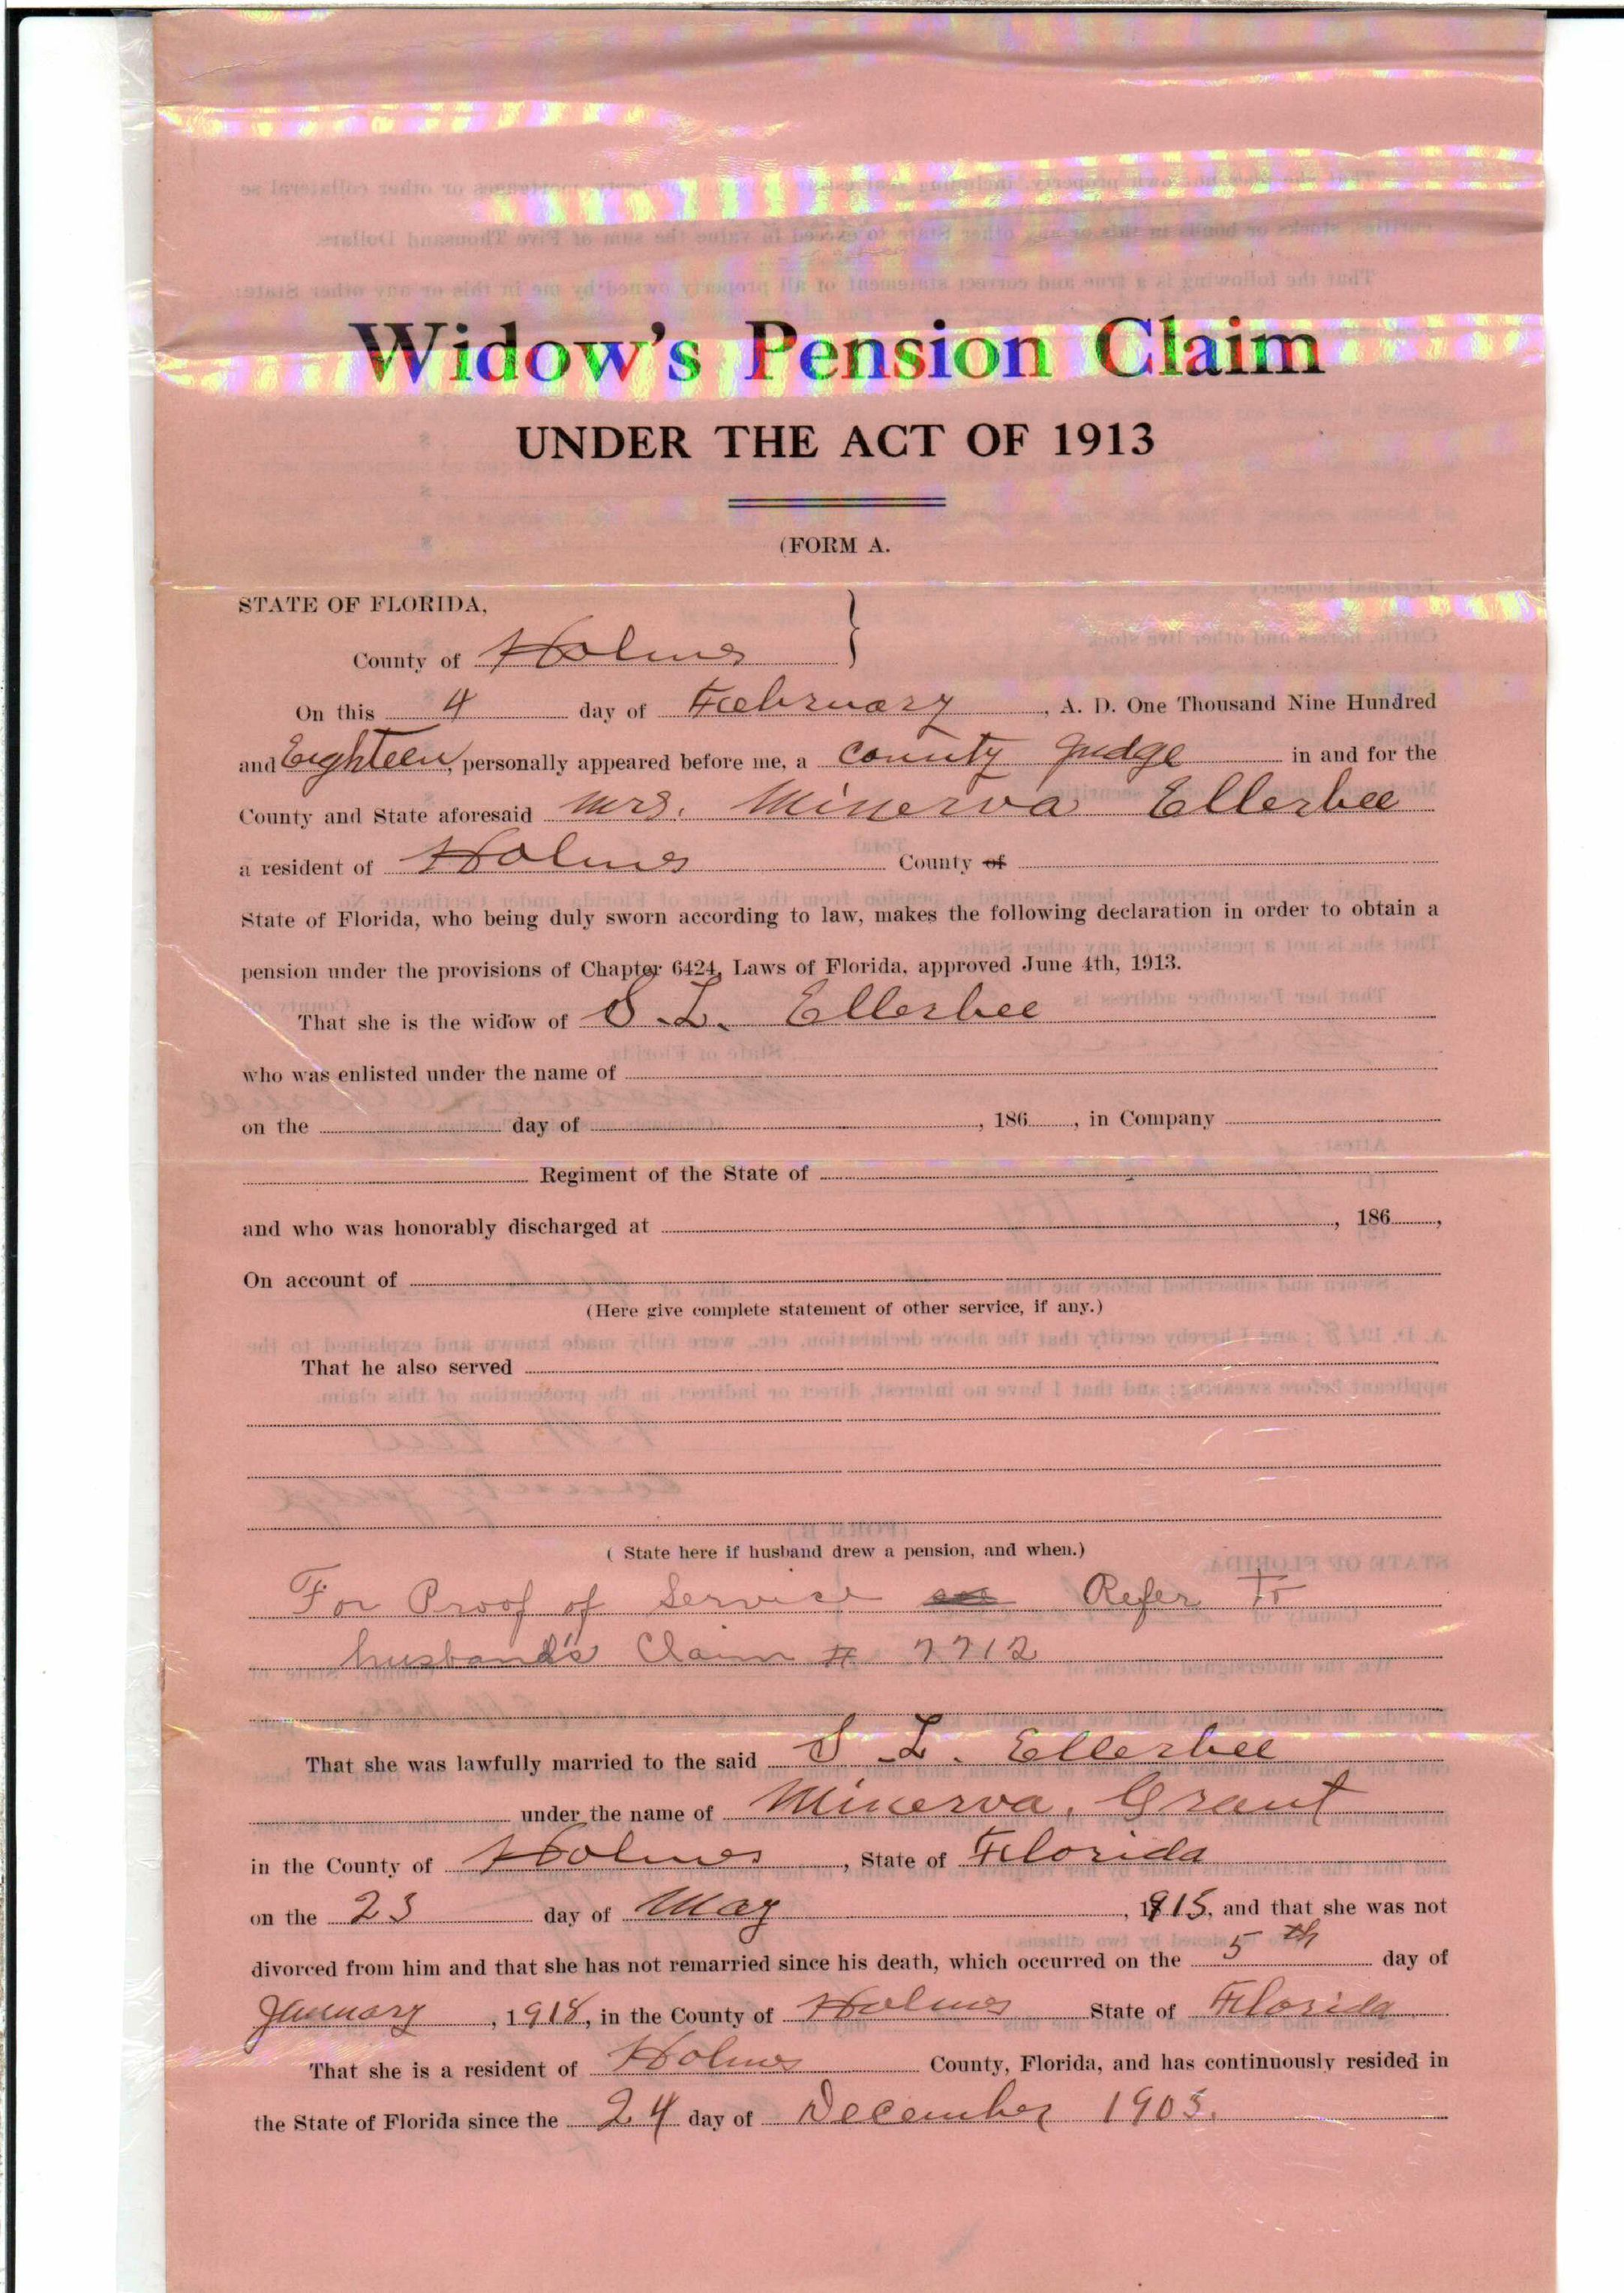 Widow's Pension Claim
UNDER THE ACT OF 1913
(FORM A.
STATE OF FLORIDA,
County of Holmes }
On this 4 day of February, A. D. One Thousand Nine Hundred
and Eighteen, personally appeared before me, a County Judge in and for the
County and State aforesaid Mrs. Minerva Ellerbee
a resident of Holmes County of
State of Florida, who being duly sworn according to law, makes the following declaration in order to obtain a
pension under the provisions of Chapter 6424, Laws of Florida, approved June 4th, 1913.
That she is the widow of S. L. Ellerbee
who was enlisted under the name of
on the day of , 186 , in Company
Regiment of the State of
and who was honorably discharged at , 186 ,
On account of
(Here give complete statement of other service, if any.)
That he also served
( State here if husband drew a pension, and when.)
For Proof of Service Refer to
husband's Claim # 7712
That she was lawfully married to the said S. L. Ellerbee
under the name of Minerva. Grant
in the County of Holmes, State of Florida
on the 23 day of May, 1915, and that she was not
divorced from him and that she has not remarried since his death, which occurred on the 5th day of
January, 1918, in the County of Holmes State of Florida
That she is a resident of Holmes County, Florida, and has continuously resided in
the State of Florida since the 24 day of December 1903.